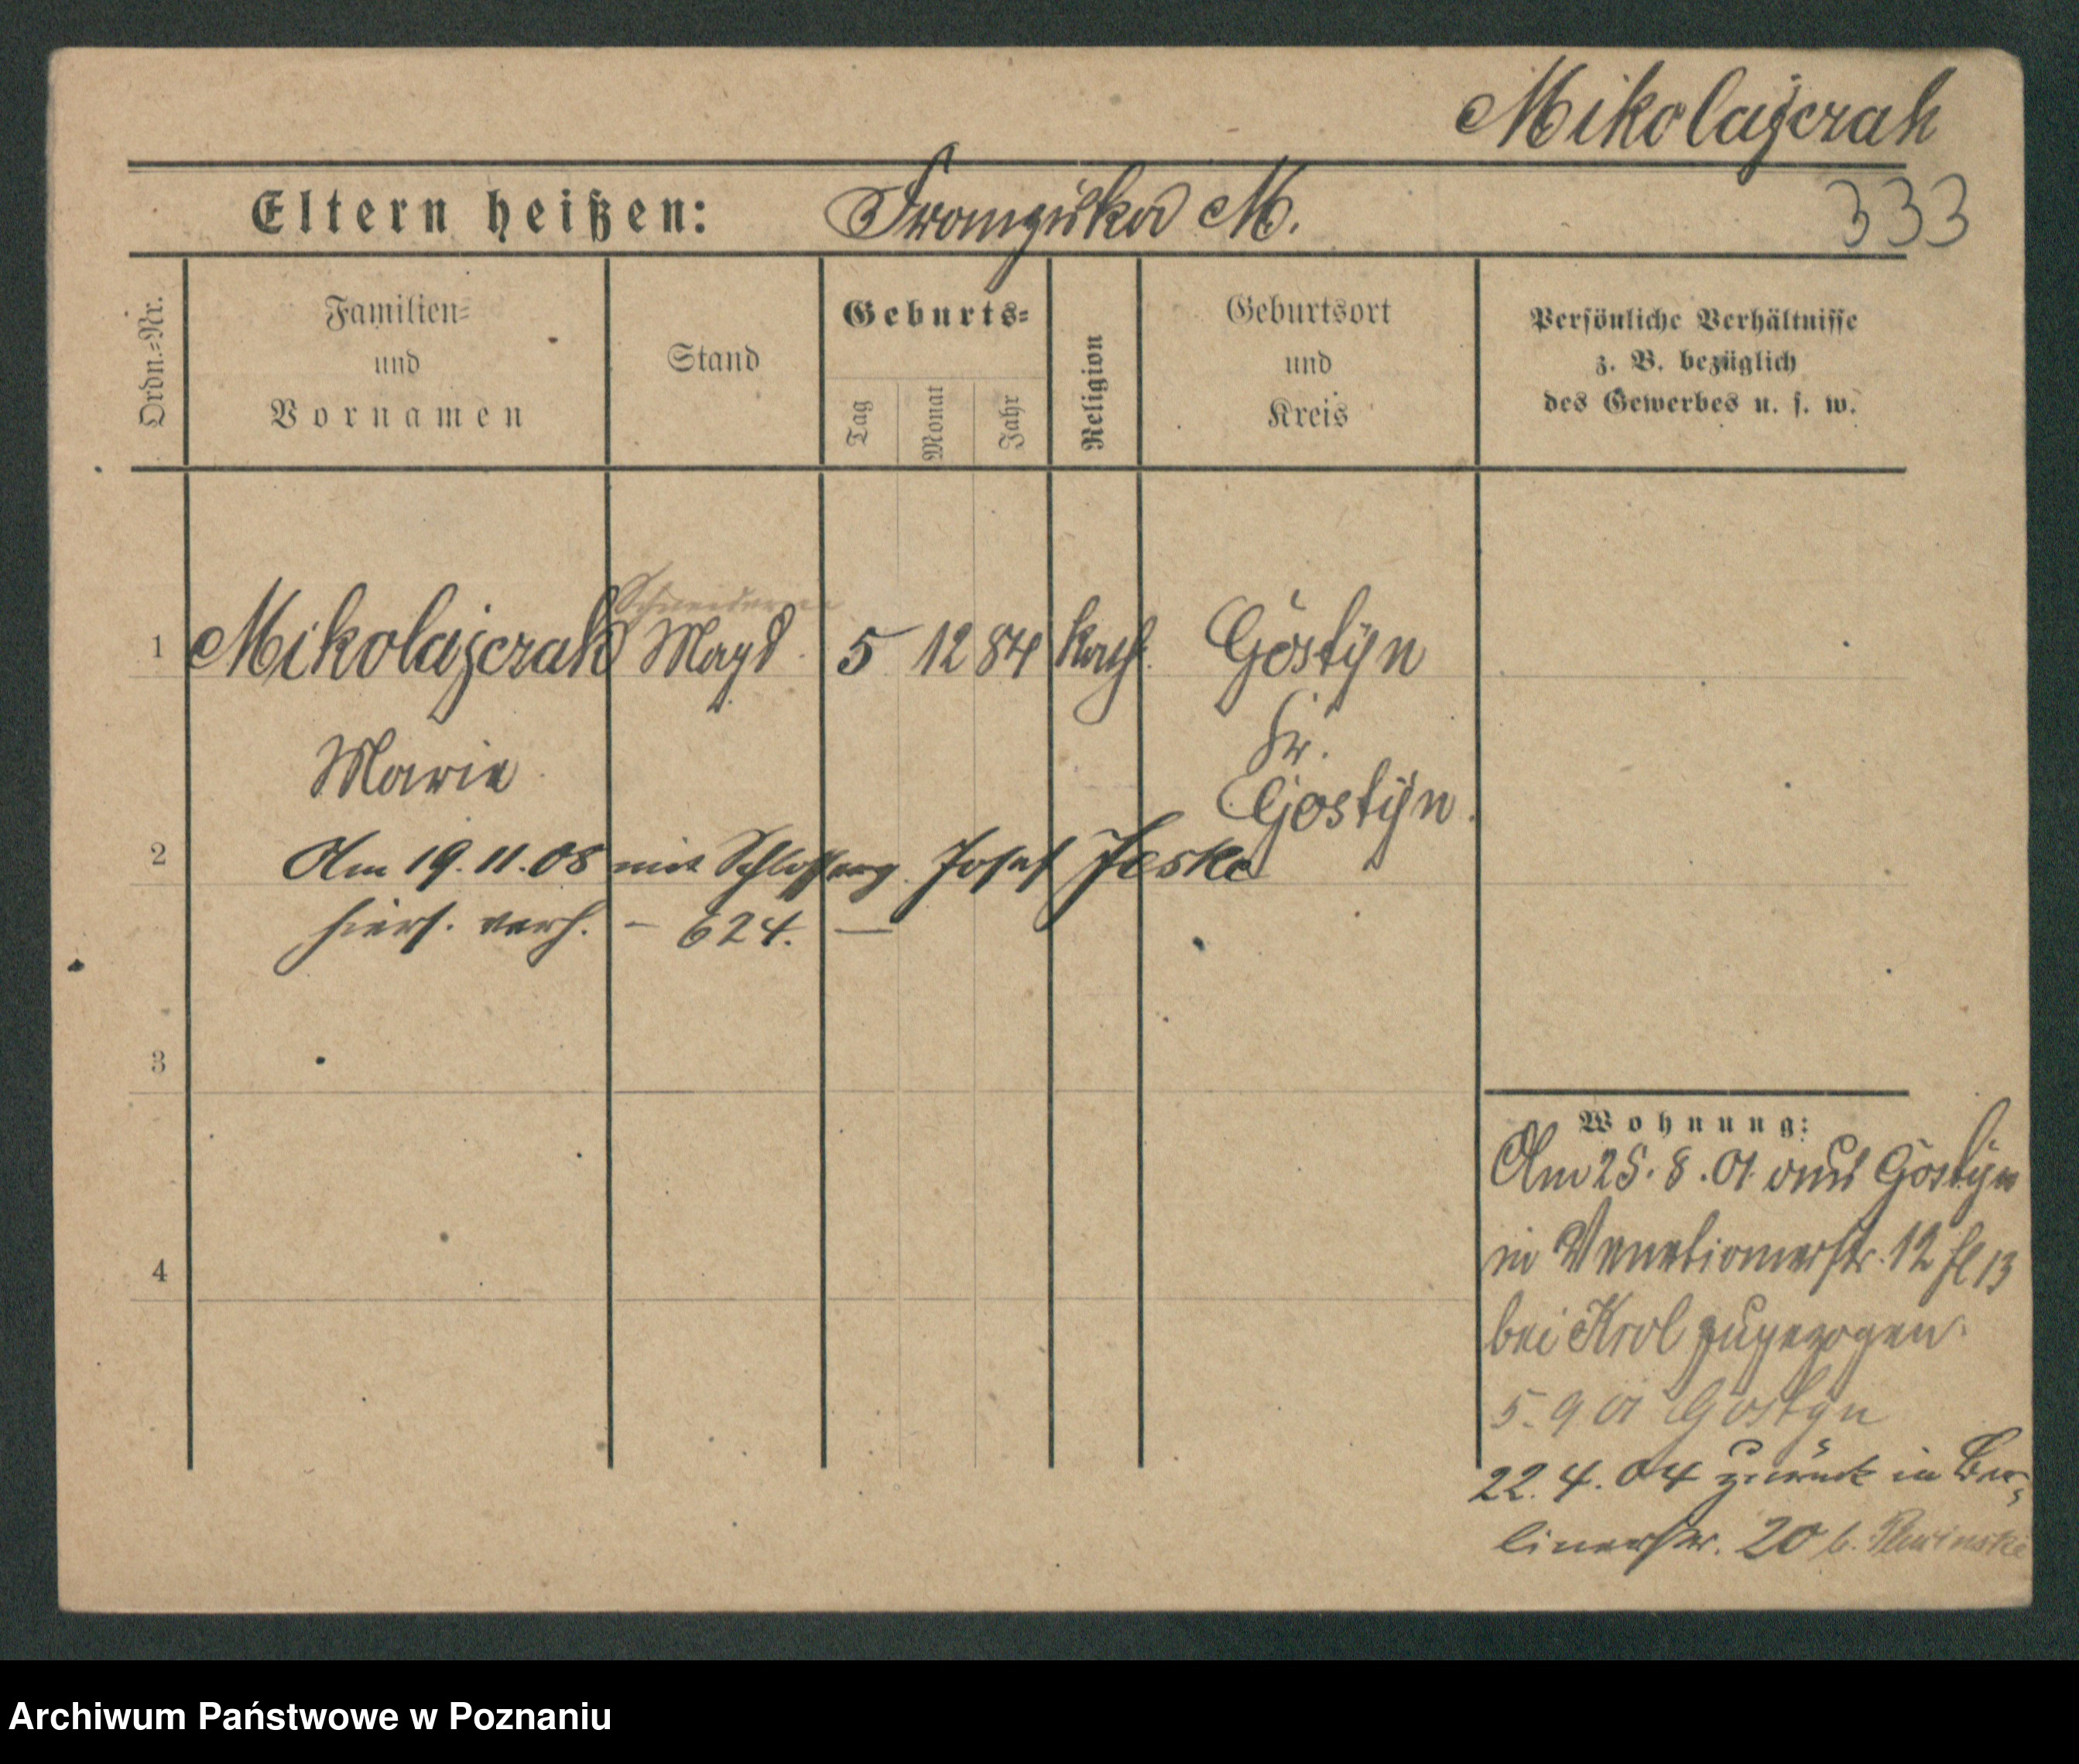 Mikolajczak
Eltern heißen: Franziska M.
333
Ordn.=Nr.
Familien=
und
Vornamen
Stand
Geburts=
Tag
Monat
Jahr
Religion
Geburtsort
und
Kreis
Persönliche Verhältnisse
z. B. bezüglich
des Gewerbes u. s. w.
Schneiderin
1 Mikolajczak Magd 5 12 84 kath. Gostyn
Kr.
Marie Gostyn.
2 Am 19.11.08 mit Josef Jeske
hiers. verh. – 624. —
3
4
Wohnung:
Am 25.8.01 aus Gostyn
in Venetianerstr. 12 13
bei Krol zugezogen.
5.9 01 Gostyn
22.4.04 zurück in Ber=
linerstr. 20 b.
Archiwum Państwowe w Poznaniu